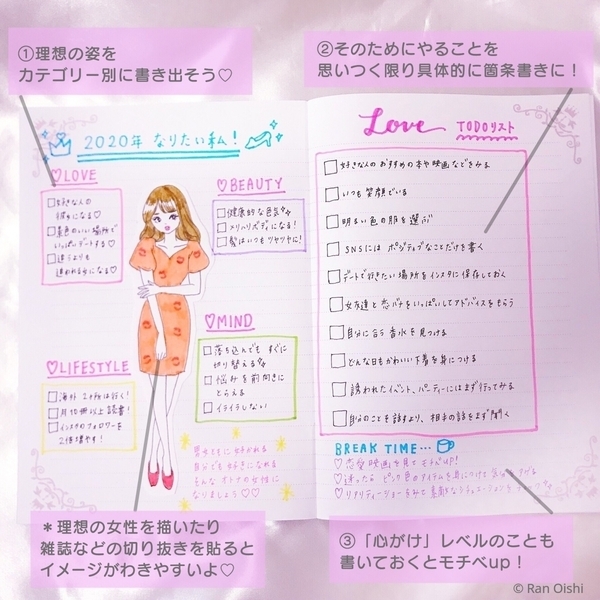 ①理想の姿を
カテゴリー別に書き出そう♡
②そのためにやることを
思いつく限り具体的に箇条書きに！
2020年 なりたい私！
♡LOVE
好きな人の
彼女になる♡
景色のいい場所で
いっぱいデートする♡
追うよりも
追われる女になる♡
♡BEAUTY
健康的な色気
メリハリボディになる！
髪はいつもツヤツヤに！
♡MIND
落ち込んでも すぐに
切り替える
悩みを前向きに
とらえる
イライラしない
♡LIFESTYLE
海外 2ヶ所は行く！
月10冊以上読書！
インスタのフォロワーを
2倍増やす！
男女ともに好かれる
自分でも好きになれる
そんなオトナの女性に
なりましょう♡♡
Love TODOリスト
好きな人のおすすめの本や映画などをみる
いつも笑顔でいる
明るい色の服を選ぶ
SNSには ポジティブなことだけを書く
デートで行きたい場所をインスタに保存しておく
女友達と恋バナをいっぱいしてアドバイスをもらう
自分に合う香水を見つける
どんな日もかわいい下着を身につける
誘われたイベント、パーティーにはまず行ってみる
自分のことを話すより、相手の話をまず聞く
BREAK TIME…
♡恋愛映画を見てモチベUP！
♡迷ったら ピンク色のアイテムを身につけて
♡リアリティーショーをみて
＊理想の女性を描いたり
雑誌などの切り抜きを貼ると
イメージがわきやすいよ♡
③「心がけ」レベルのことも
書いておくとモチベup！
© Ran Oishi